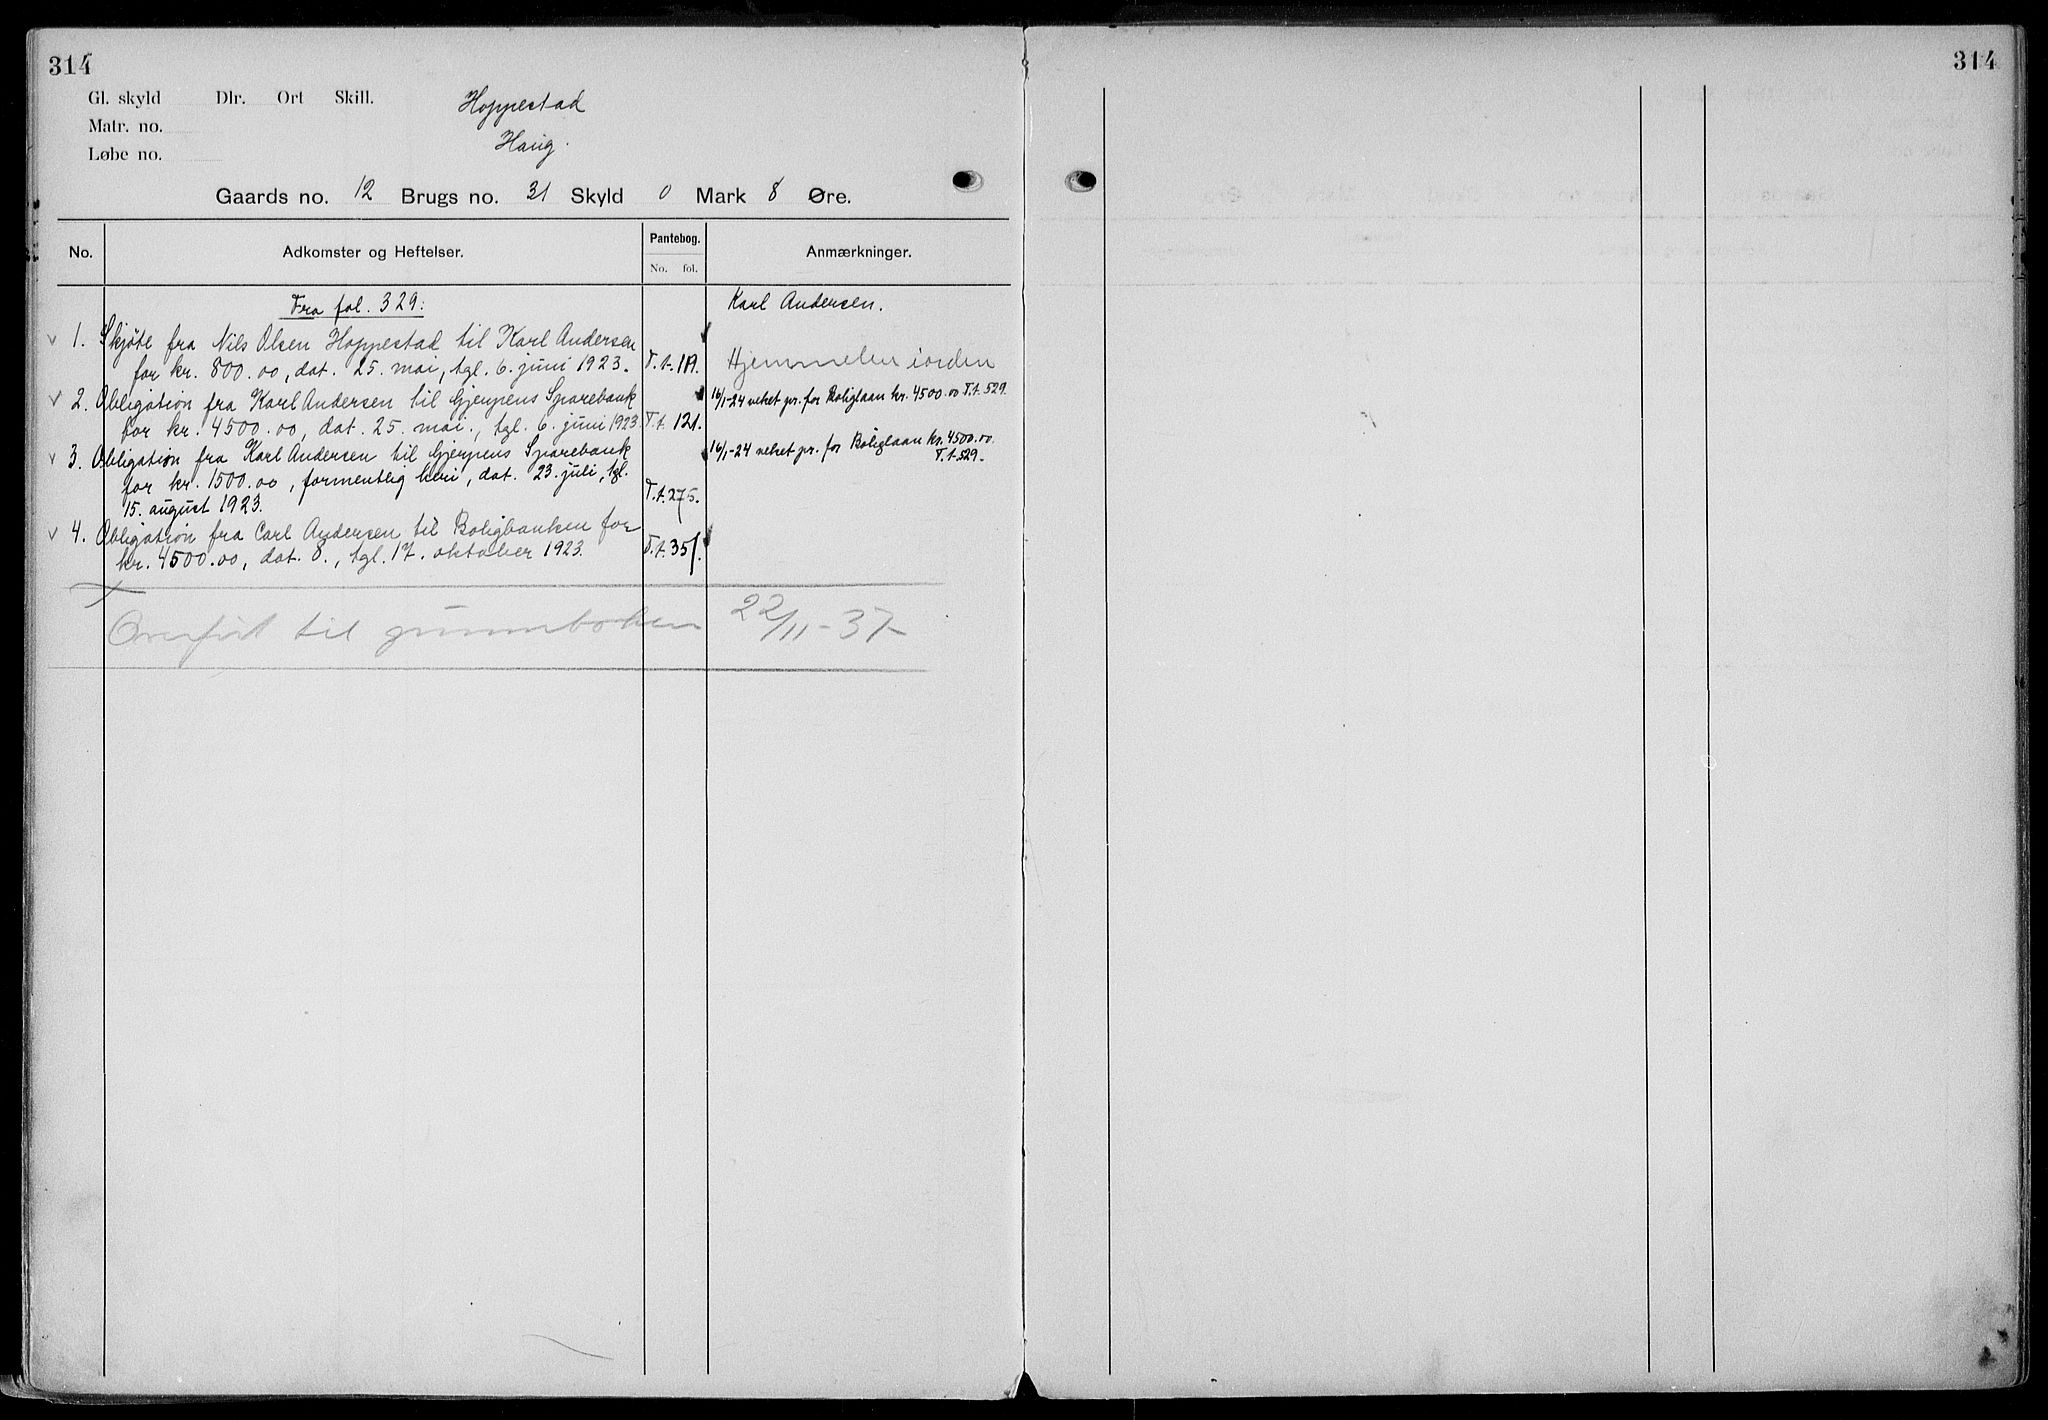 314
314
Gl. skyld Dlr. Ort Skill. Hoppestad
Matr. no. Haug.
Løbe no.
Gaards no. 12 Brugs no. 31 Skyld 0 Mark 8 Øre.
No. Adkomster og Heftelser. Pantebog. Anmærkninger.
No. fol.
Fra fol. 329: Karl Andersen.
1. Skjøte fra Nils Olsen Hoppestad til Karl Andersen
for kr. 800.00, dat. 25. mai, tgl. 6. juni 1923. T.1. 119. Hjemmelen iorden
2. Obligation fra Karl Andersen til Gjerpens Sparebank 16/1-24 veket pr. for Boliglaan kr. 4500.00 T.1. 529.
for kr. 4500.00, dat. 25. mai., tgl. 6. juni 1923 T.1. 121.
3. Obligation fra Karl Andersen til Gjerpens Sparebank 16/1-24 veket pr. for Boliglaan kr. 4500.00.
T.1. 529.
for kr. 1500.00, formentlig heri, dat. 23. juli, tgl.
15. august 1923. T.1. 275.
4. Obligation fra Carl Andersen til Boligbanken for
kr. 4500.00, dat. 8., tgl. 17. oktober 1923. T.1. 351.
Overført til grunnboken 22/11-37-